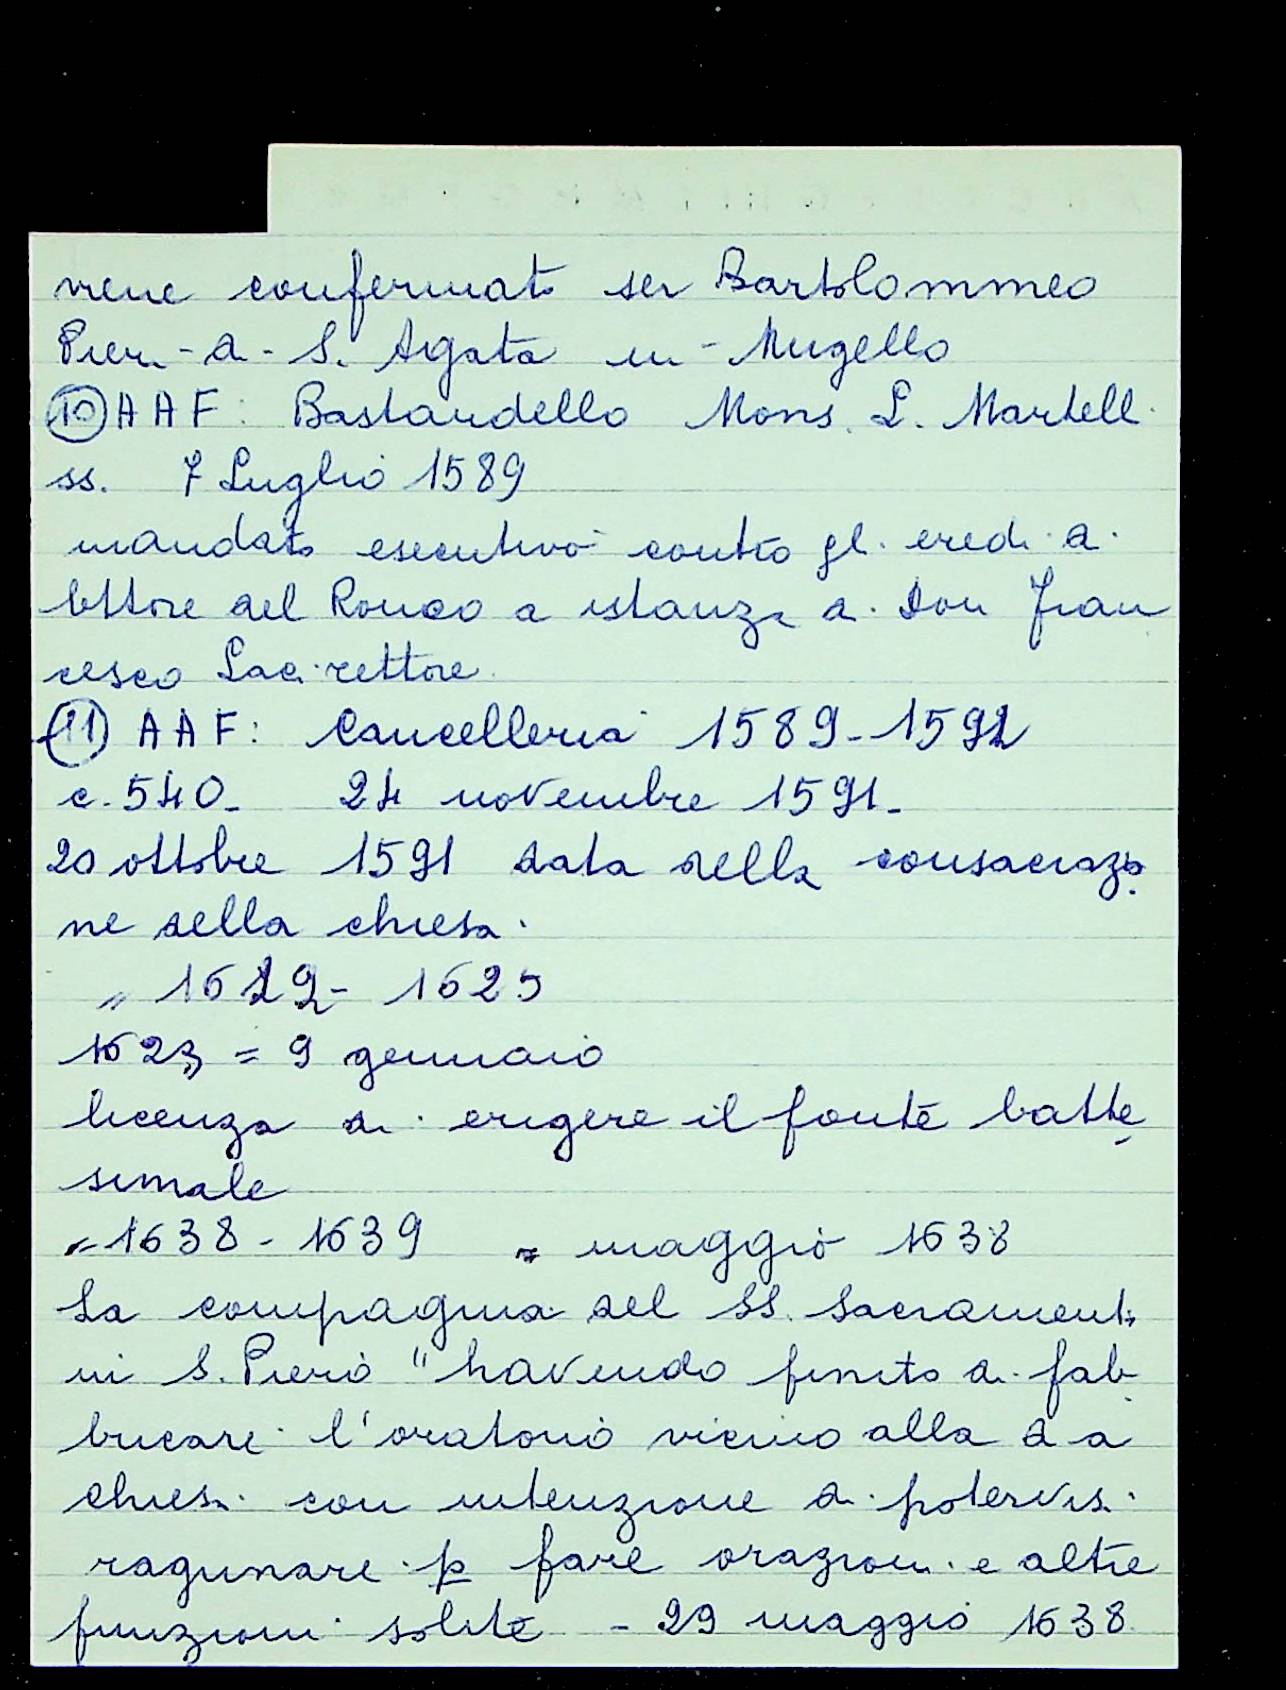 viene confermato ser Bartolommeo
Pieri - di - S. Agata in - Mugello
(10) AAF: Bastardello Mons. L. Martelli
ss. 7 Luglio 1589
mandato esecutivo contro gli eredi di
Ettore del Ronco a istanza di Don Fran
cesco Laci rettore
(11) AAF: Cancelleria 1589-1592
c. 540- 24 novembre 1591-
20 ottobre 1591 data della consacrazio
ne della chiesa.
" - 1625
1623 = 9 gennaio
licenza di erigere il fonte batte
simale
" 1638 - 1639 = maggio 1638
La compagnia del SS. Sacramento
in S. Piero "havendo finito di fab
bricare l'oratorio vicino alla da
chiesa con intenzione di potervisi
ragunare p fare orazioni e altre
funzioni solite - 29 maggio 1638